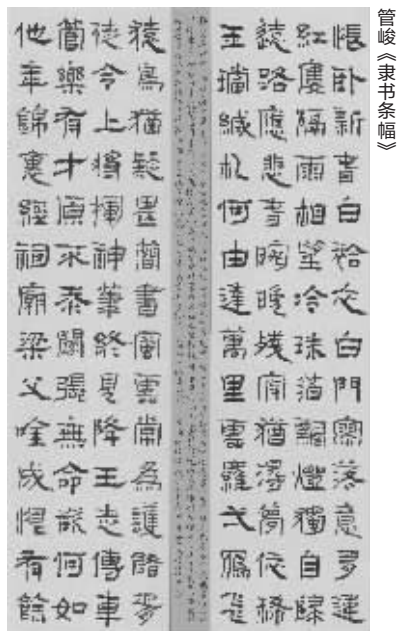 管峻《隶书条幅》
悵臥新春白袷衣白門寥落意多違
紅樓隔雨相望冷珠箔飄燈獨自歸
遠路應悲春晼晚殘宵猶得夢依稀
玉璫緘札何由達萬里雲羅弌鴈飛
猿鳥猶疑畏簡書風雲常為護儲胥
徒令上將揮神筆終見降王走傳車
管樂有才原不忝關張無命欲何如
他年錦裏經祠廟梁父唫成恨有餘